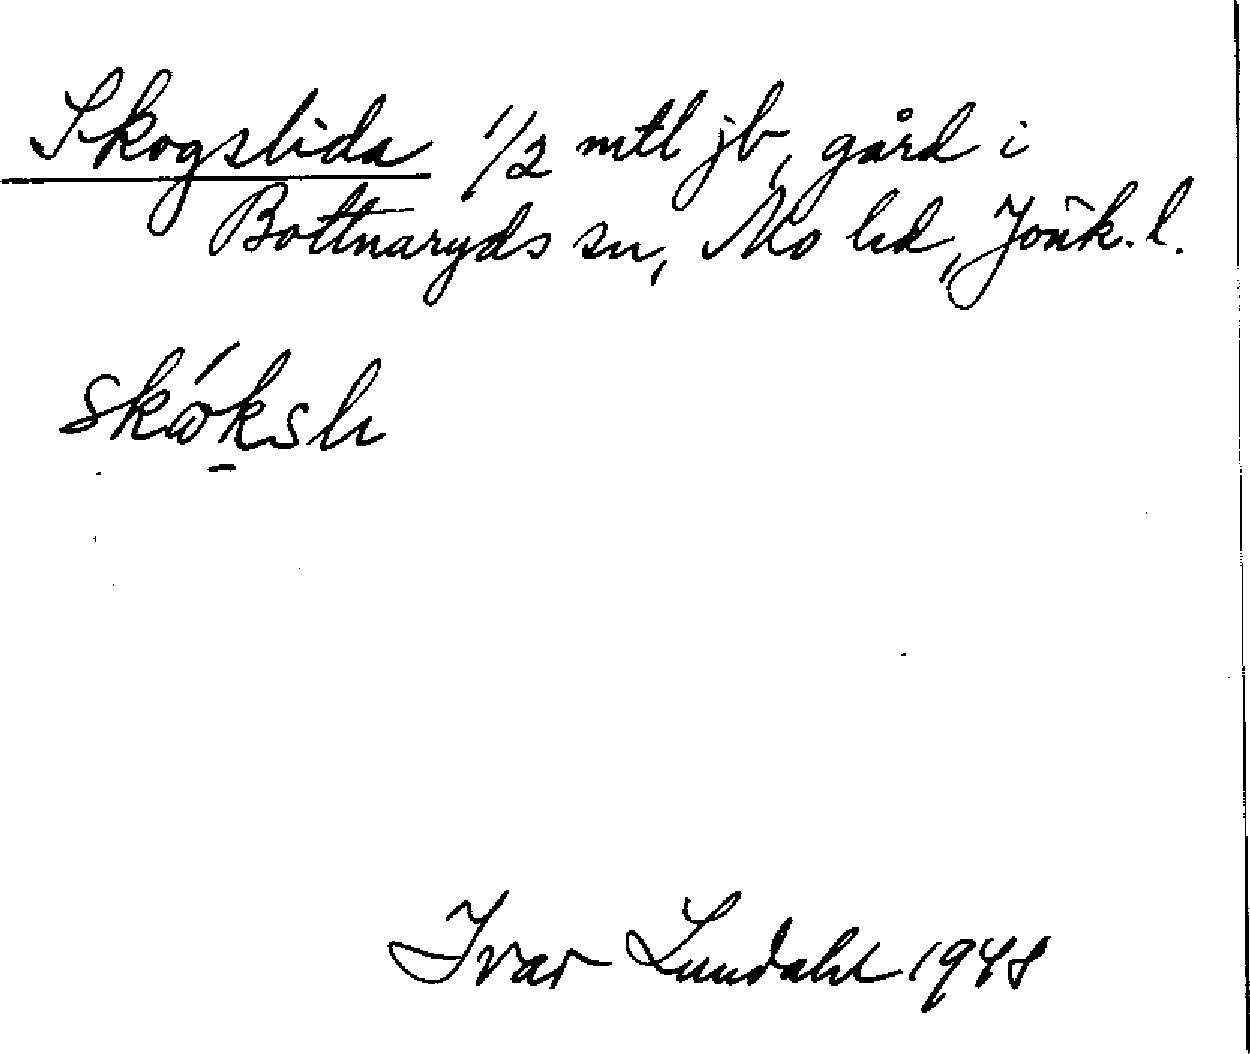 Skogslida 1/2 mtl jb, gård i
Bottnaryds sn, Mo hd, Jönk. l.
Ivar Lundahl 1948